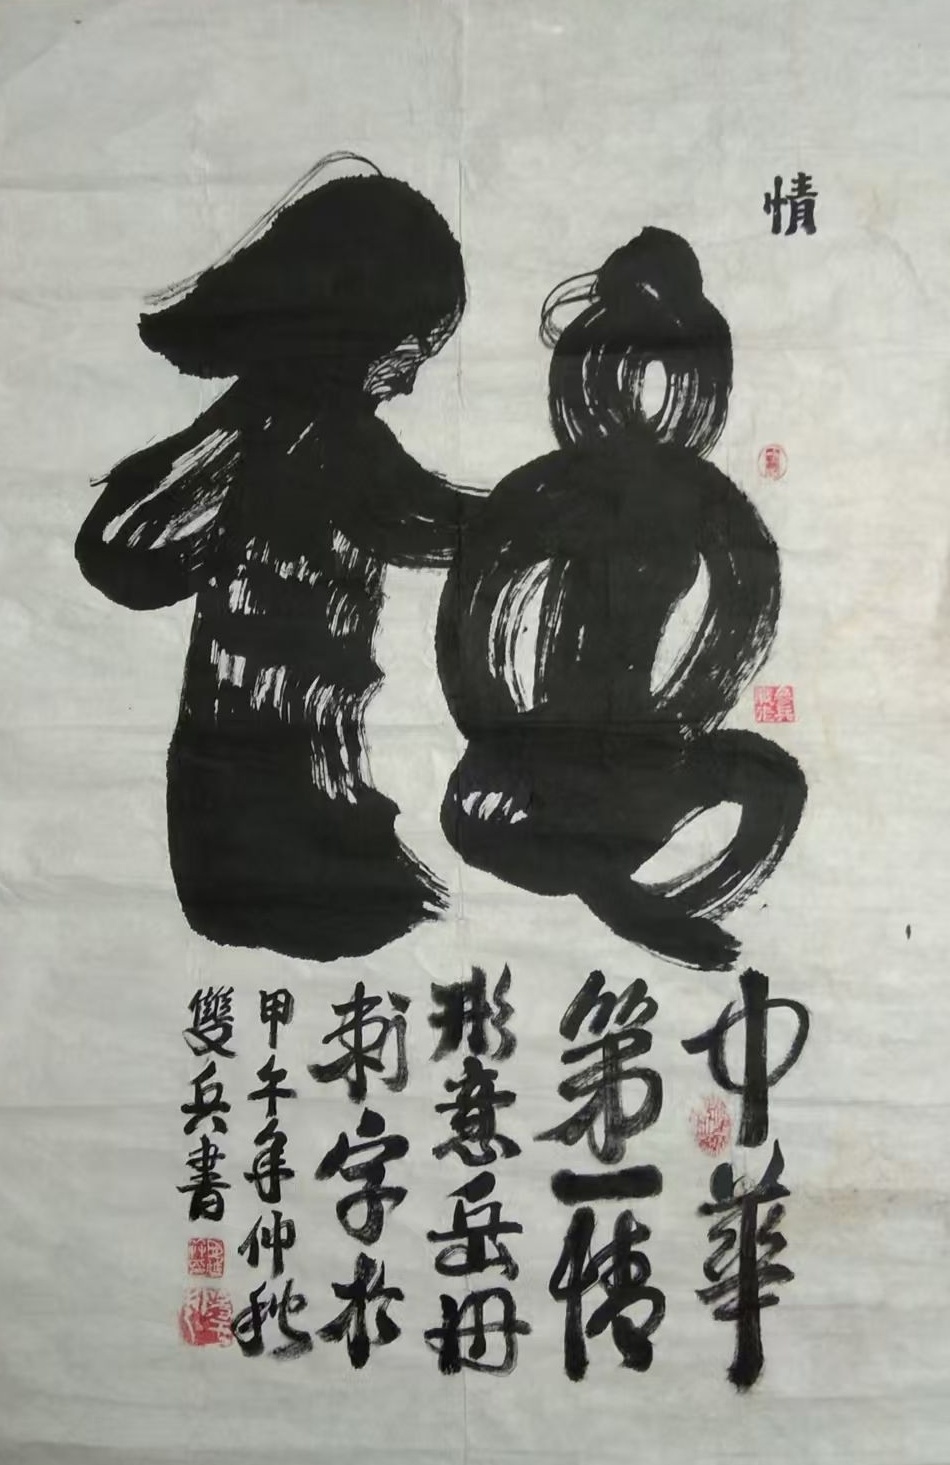 情
中華
第一情
形意岳母
刺字於
甲午年仲秋
雙兵書